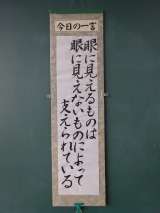 今日の一言
眼に見えるものは
眼に見えないものによって
支えられている